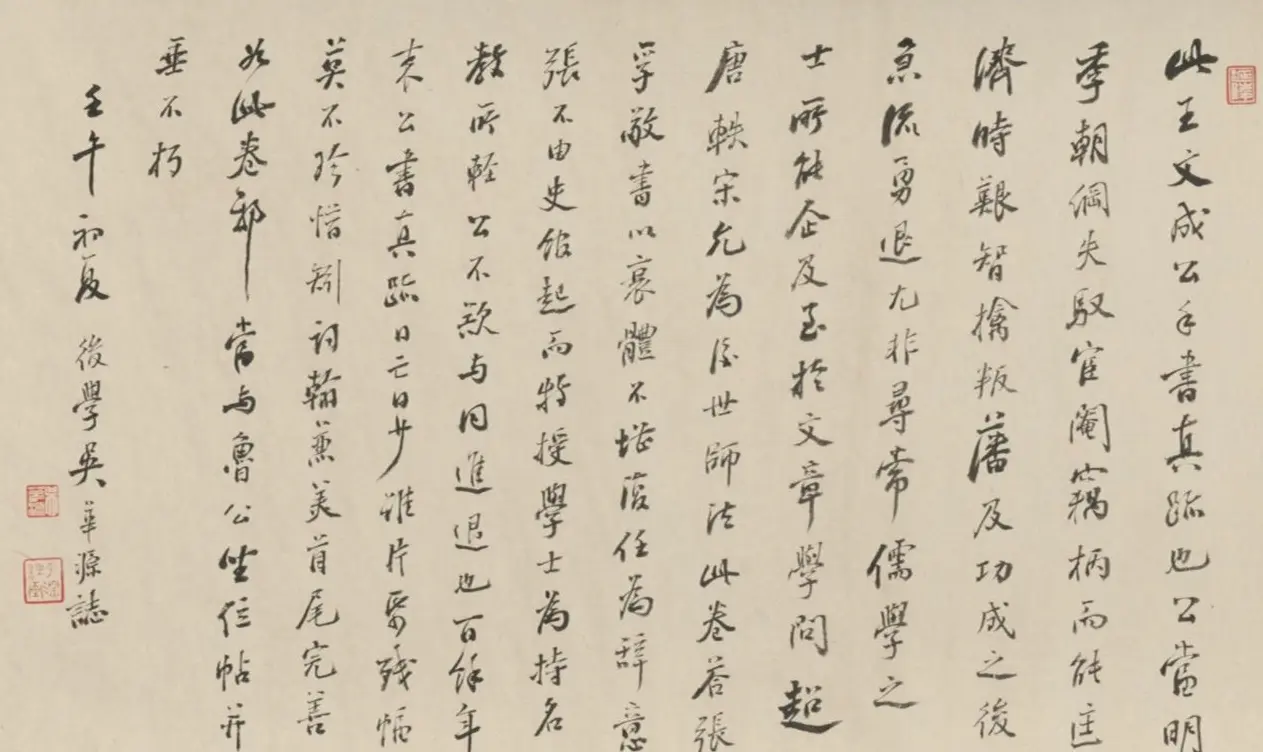 此王文成公手書真跡也公當明
季朝綱失馭宦閹竊柄而能匡
濟時艱智擒叛藩及功成之後
急流勇退尤非尋常儒學之
士所能企及至於文章學問超
唐軼宋允為後世師法此卷答張
孚敬書以衰體不堪復任為辭意
張不由史館起而特授學士為持名
教所輕公不欲与同進退也百餘年
来公書真跡日亡日少雖片紙殘幅
莫不珍惜矧詞翰兼美首尾完善
如此卷耶當与魯公坐位帖并
垂不朽
壬午初夏後學吳華源誌